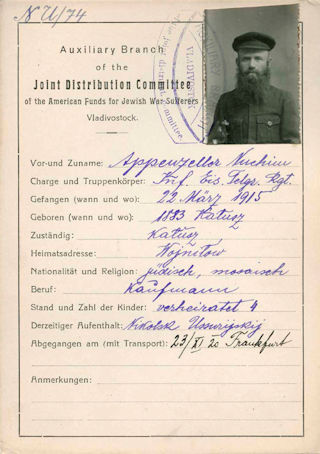 N U/74
Auxiliary Branch
of the
Joint Distribution Committee
of the American Funds for Jewish War Sufferers
Vladivostock.
Vor-und Zuname: Appenzeller Nuchim
Charge und Truppenkörper: Inf. bis. Telgr. Rgt.
Gefangen (wann und wo): 22 März 1915
Geboren (wann und wo): 1883 Katusz
Zuständig: Katusz
Heimatsadresse: Wojniłow
Nationalität und Religion: jüdisch, mosaisch
Beruf: Kaufmann
Stand und Zahl der Kinder: verheiratet 4
Derzeitiger Aufenthalt: Nikolsk Ussurijskij
Abgegangen am (mit Transport): 23/XI 20 Frankfurt
Anmerkungen: